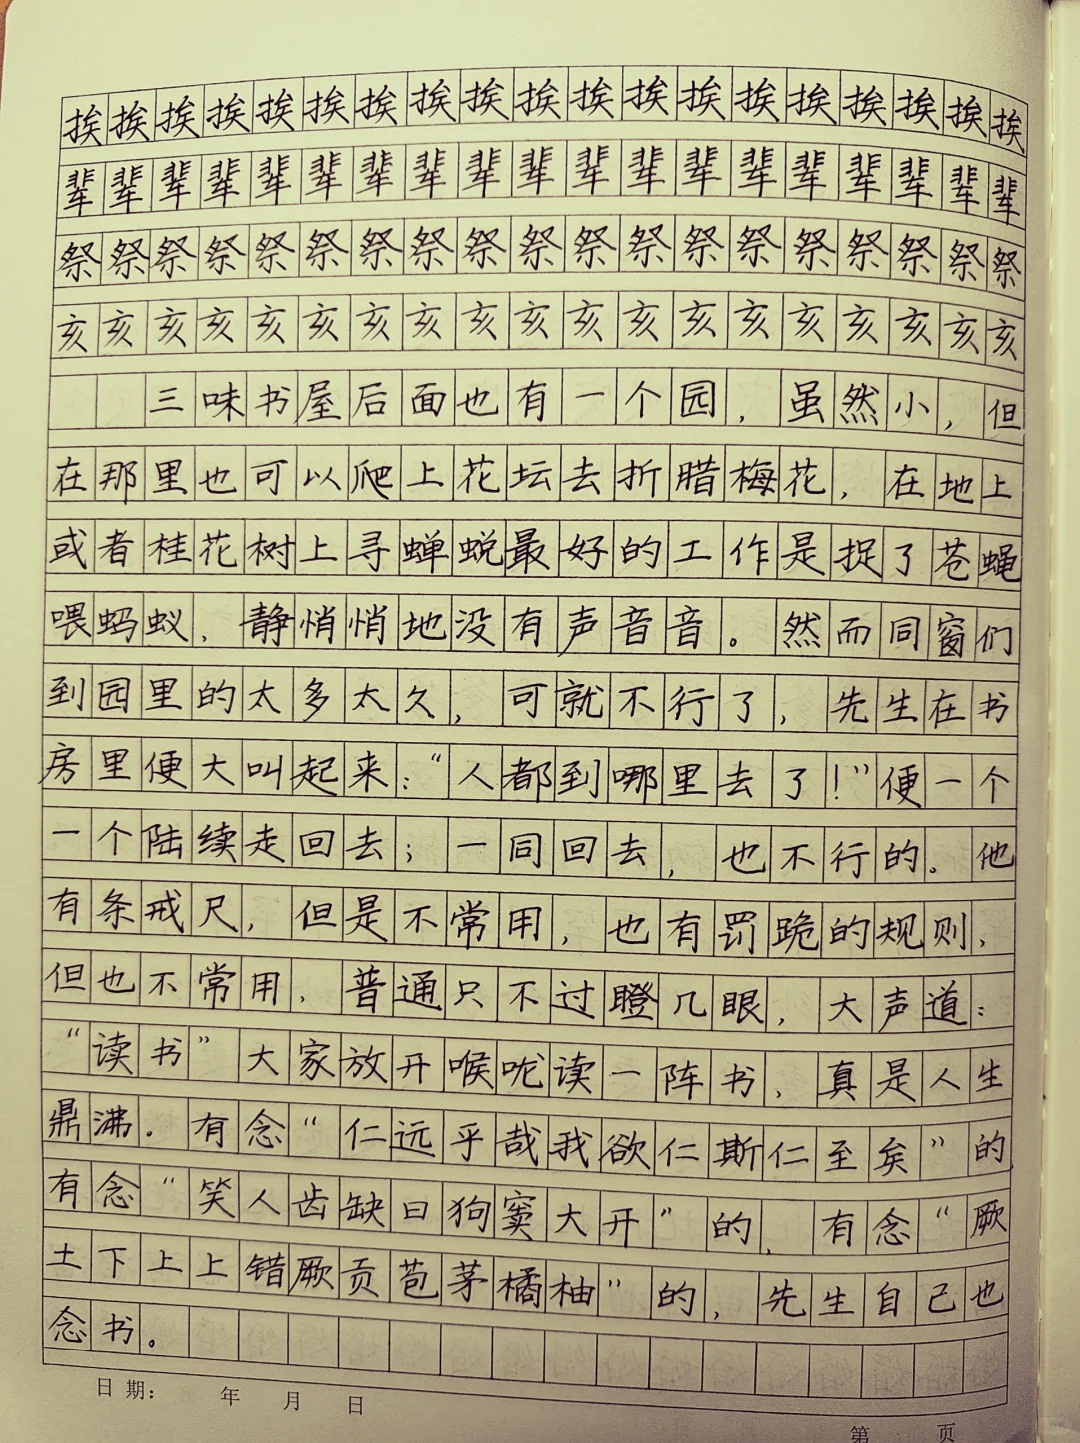 挨挨挨挨挨挨挨挨挨挨挨挨挨挨挨挨挨挨挨
辈辈辈辈辈辈辈辈辈辈辈辈辈辈辈辈辈辈辈
祭祭祭祭祭祭祭祭祭祭祭祭祭祭祭祭祭祭祭
亥亥亥亥亥亥亥亥亥亥亥亥亥亥亥亥亥亥亥
三味书屋后面也有一个园，虽然小，但
在那里也可以爬上花坛去折腊梅花，在地上
或者桂花树上寻蝉蜕最好的工作是捉了苍蝇
喂蚂蚁，静悄悄地没有声音音。然而同窗们
到园里的太多太久，可就不行了，先生在书
房里便大叫起来：“人都到哪里去了！”便一个
一个陆续走回去；一同回去，也不行的。他
有条戒尺，但是不常用，也有罚跪的规则，
但也不常用，普通只不过瞪几眼，大声道：
“读书”大家放开喉咙读一阵书，真是人生
鼎沸。有念“仁远乎哉我欲仁斯仁至矣”的
有念“笑人齿缺曰狗窦大开”的，有念“厥
土下上上错厥贡苞茅橘柚”的，先生自己也
念书。
日期： 年 月 日
第 页